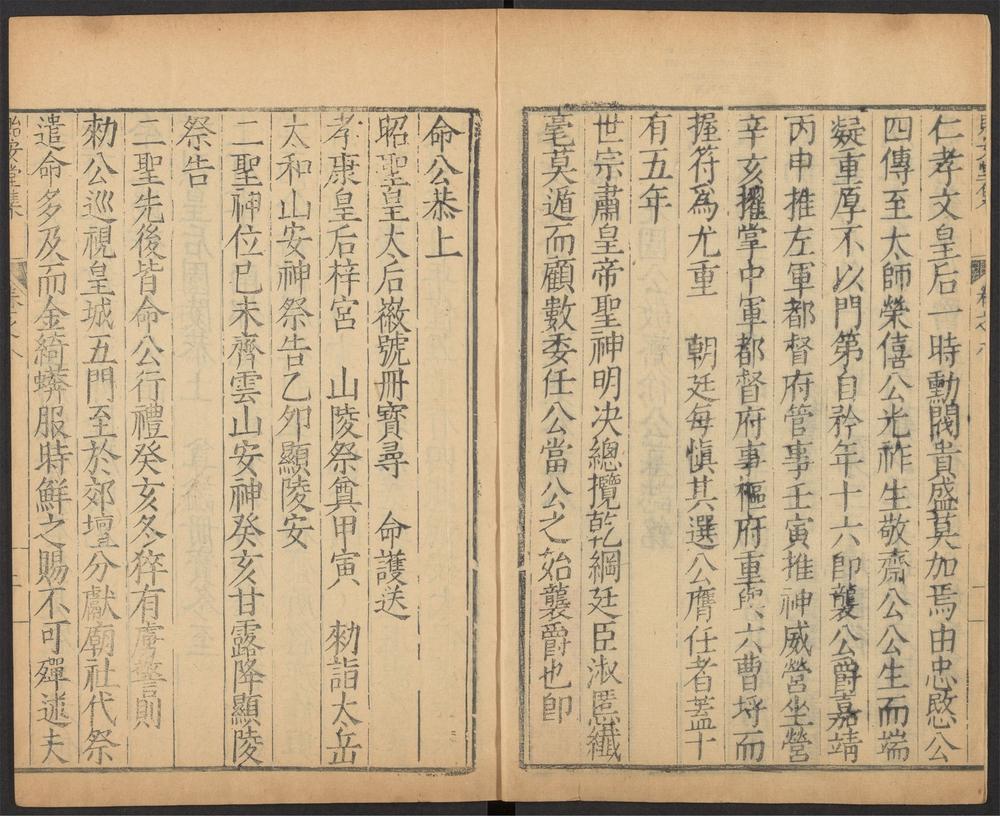 仁孝文皇后一時勳閥貴盛莫加焉由忠愍公
四傳至太師榮僖公光祚生敬齋公公生而端
凝重厚不以門第自矜年十六即襲公爵嘉靖
丙申推左軍都督府管事壬寅推神威營坐營
辛亥擢掌中軍都督府事樞府重與六曹埒而
握符爲尤重 朝廷每慎其選公膺任者蓋十
有五年
世宗肅皇帝聖神明決總攬乾綱廷臣淑慝纖
毫莫遁而顧數委任公當公之始襲爵也卽
命公恭上
昭聖皇太后徽號冊寶尋 命護送
孝康皇后梓宮 山陵祭奠甲寅 勑詣太岳
太和山安神祭告乙卯顯陵安
二聖神位巳未齊雲山安神癸亥甘露降顯陵
祭告
二聖先後皆命公行禮癸亥冬猝有虜警則
勑公巡視皇城五門至於郊壇分獻廟社代祭
遣命多及而金綺蟒服時鮮之賜不可殫述夫